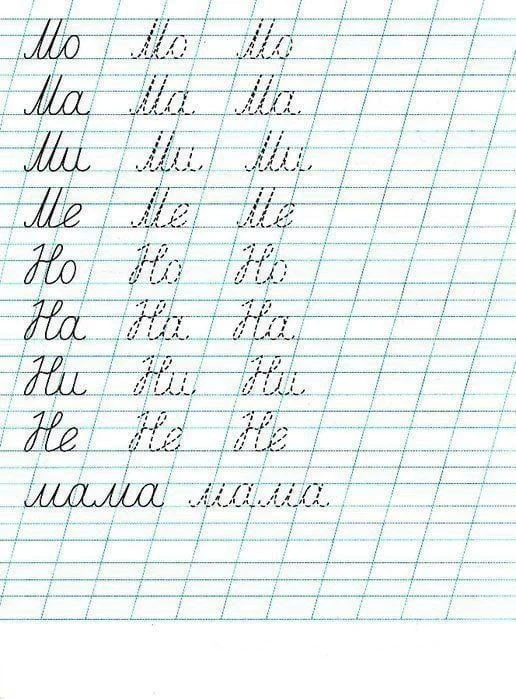 Мо Мо Мо
Ма Ма Ма
Ми Ми Ми
Ме Ме Ме
Но Но Но
На На На
Ни Ни Ни
Не Не Не
мама мама